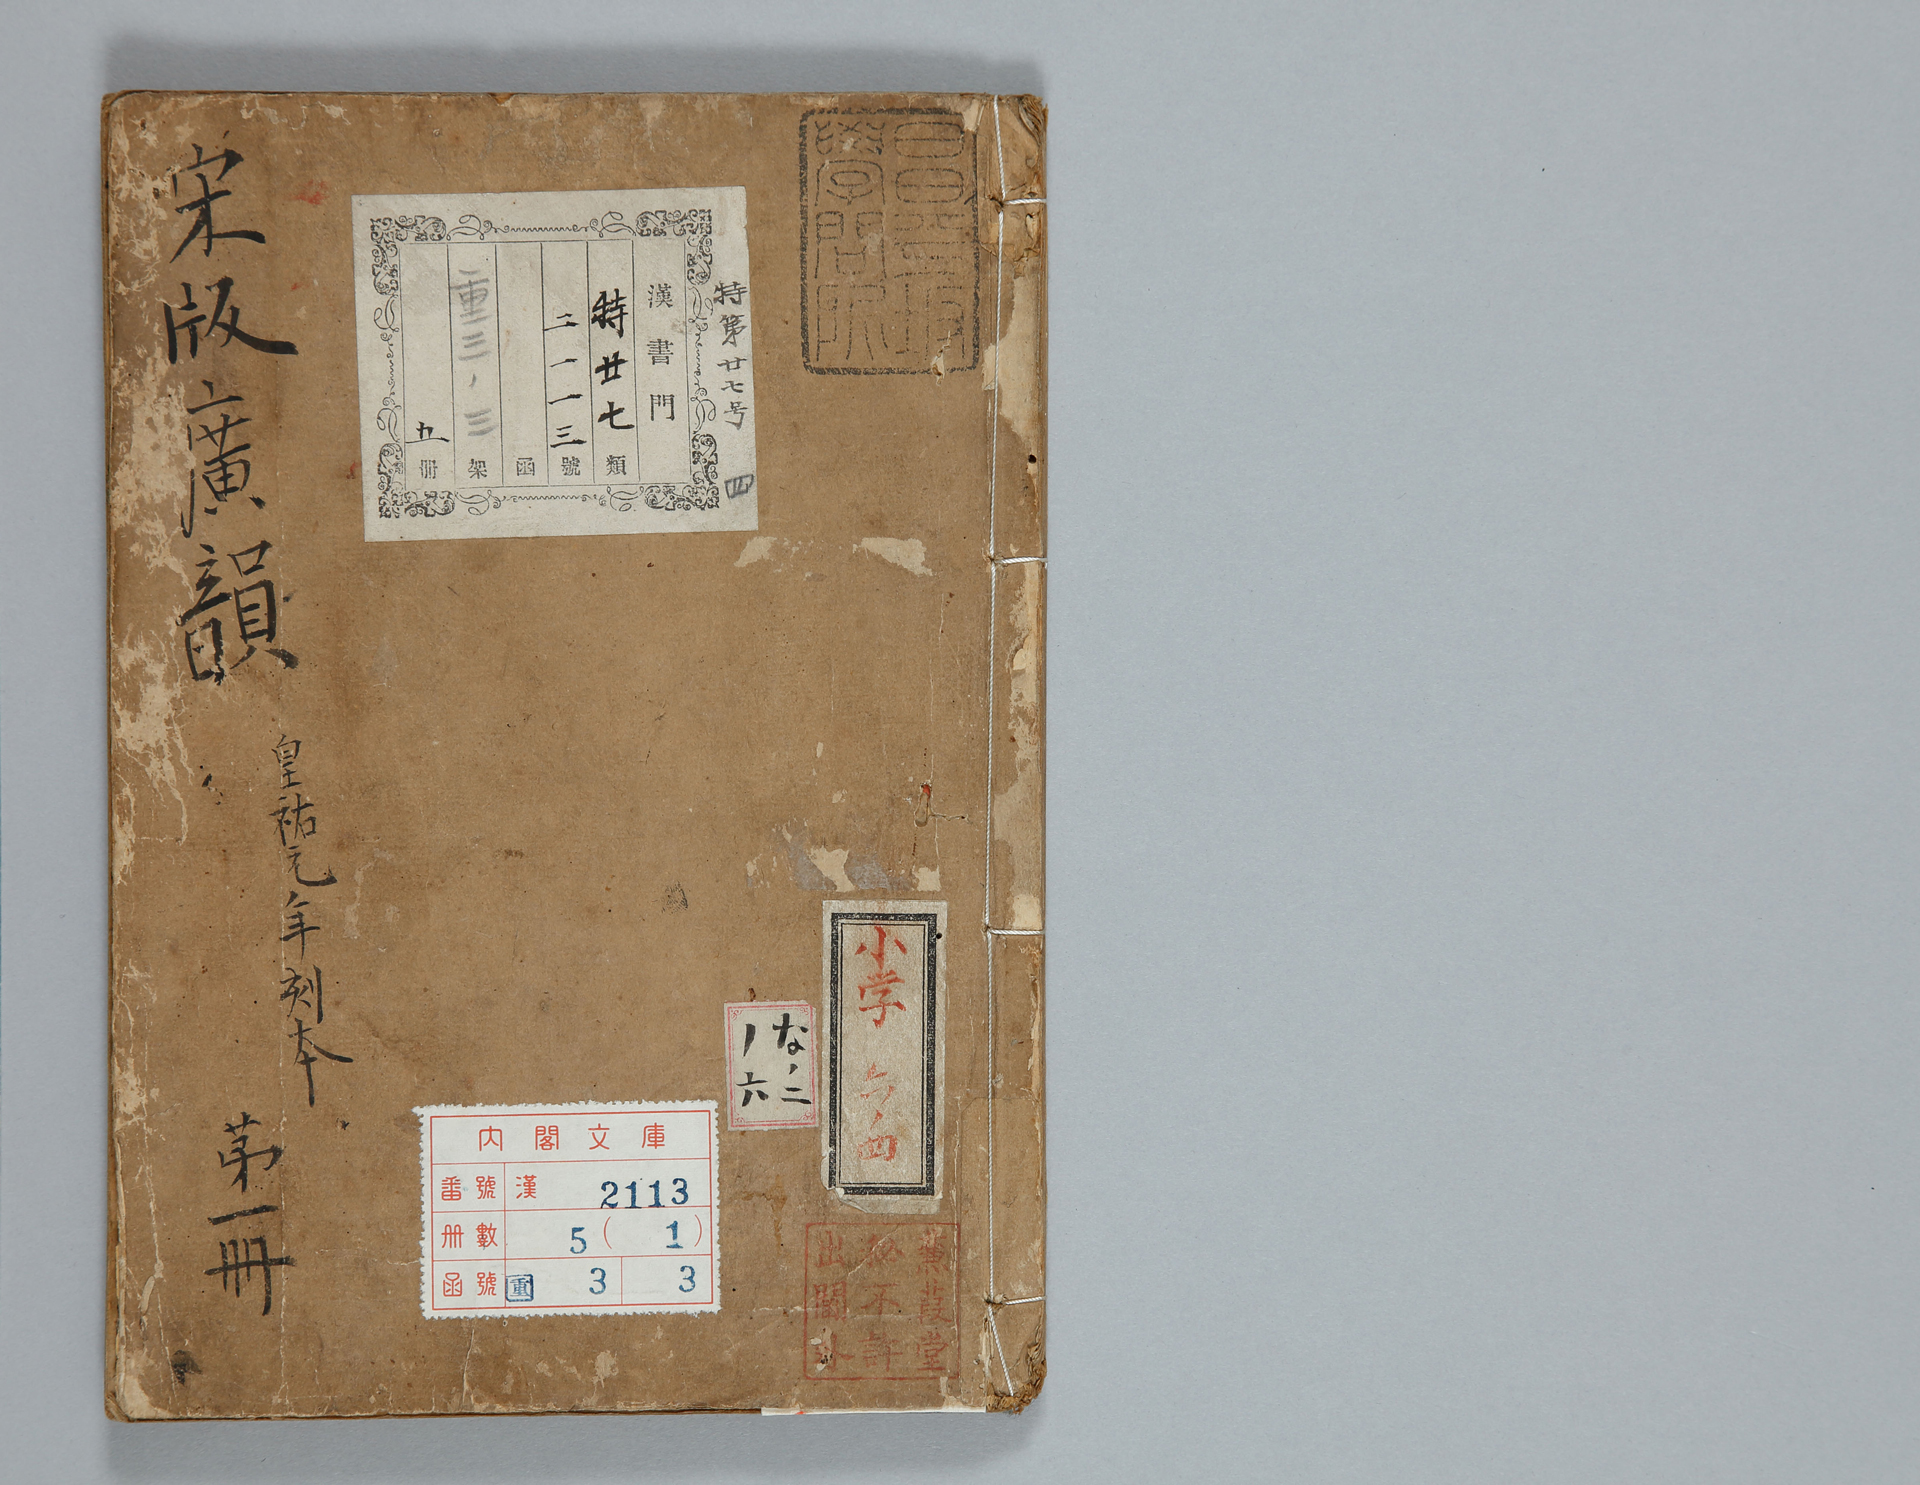 宋版廣韻
皇祐元年刻本
第一冊
昌平坂
學問所
特第廿七号
四
漢書門
特廿七類
二一一三號
函
重三ノ三架
五冊
小学
な、二
ノ六
内閣文庫
番號 漢 2113
册數 5 (1)
函號 重 3 3
蒹葭堂
祕不許
出閣外